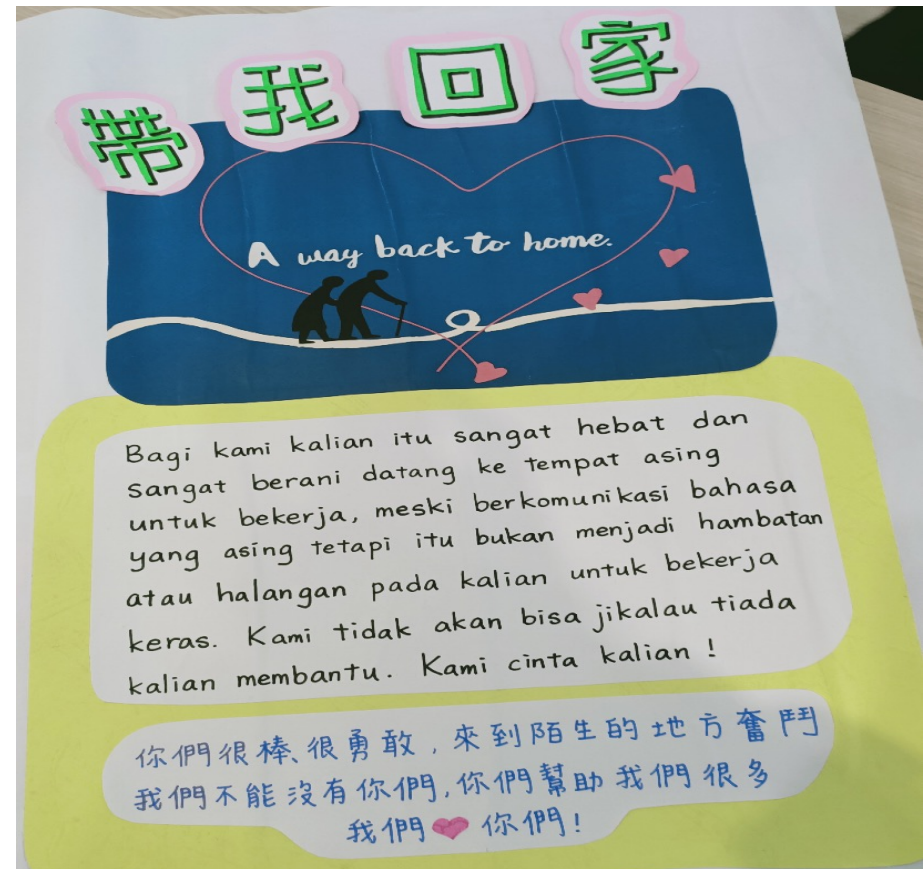 帶我回家
A way back to home.
Bagi kami kalian itu sangat hebat dan
sangat berani datang ke tempat asing
untuk bekerja, meski berkomunikasi bahasa
yang asing tetapi itu bukan menjadi hambatan
atau halangan pada kalian untuk bekerja
keras. Kami tidak akan bisa jikalau tiada
kalian membantu. Kami cinta kalian !
你們很棒、很勇敢,來到陌生的地方奮鬥
我們不能沒有你們,你們幫助我們很多
我們❤你們!